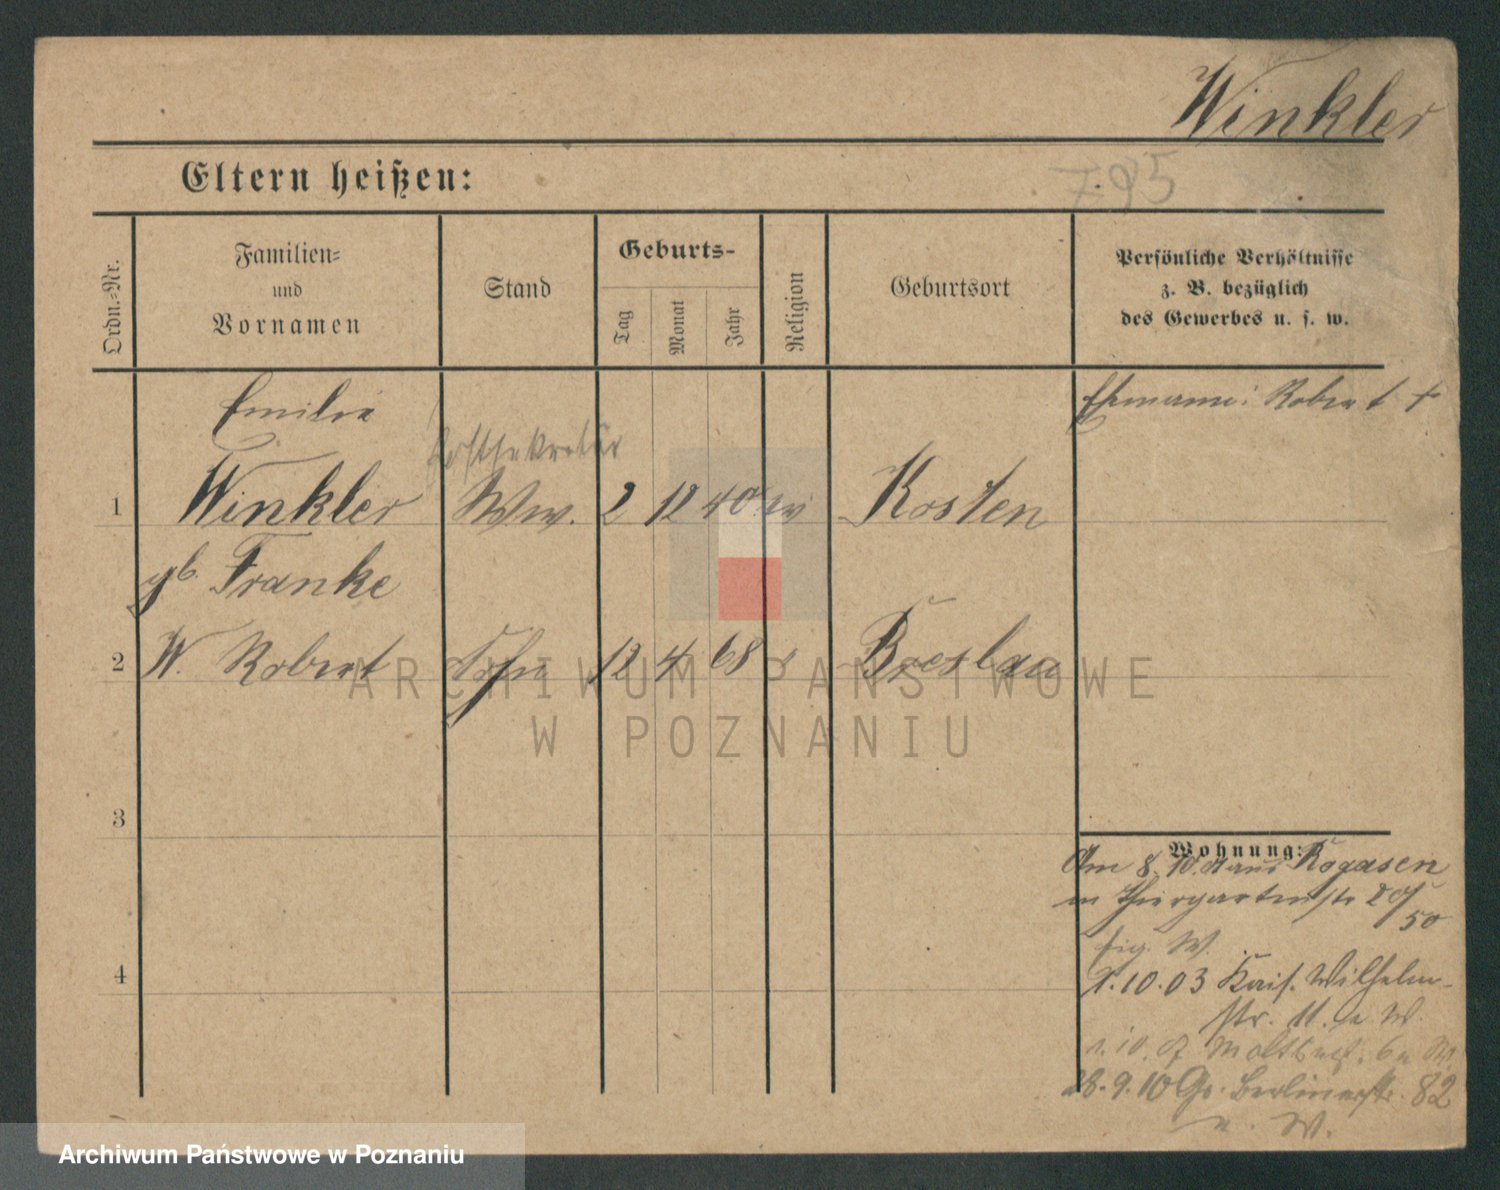 Winkler
Eltern heißen:
795
Ordn.=Nr.
Familien=
und
Vornamen
Stand
Geburts-
Tag
Monat
Jahr
Religion
Geburtsort
Persönliche Verhältnisse
z. B. bezüglich
des Gewerbes u. s. w.
Emilie
Ehemann: Robert †
Postsekretär
1 Winkler Ww. 2 12 40 ev Kosten
gb. Franke
2 W. Robert Sohn 12 4 68 Breslau
ARCHIWUM PAŃSTWOWE
W POZNANIU
3
Wohnung:
Am 8. 10. 01 aus Rogasen
in Thiergartenstr
50
Eig. W.
4
1.10.03 Kais. Wilhelm-
str. 11. e. W.
1. 10. 07
28. 9. 10 Gr. Berlinerstr. 82
e. W.
Archiwum Państwowe w Poznaniu